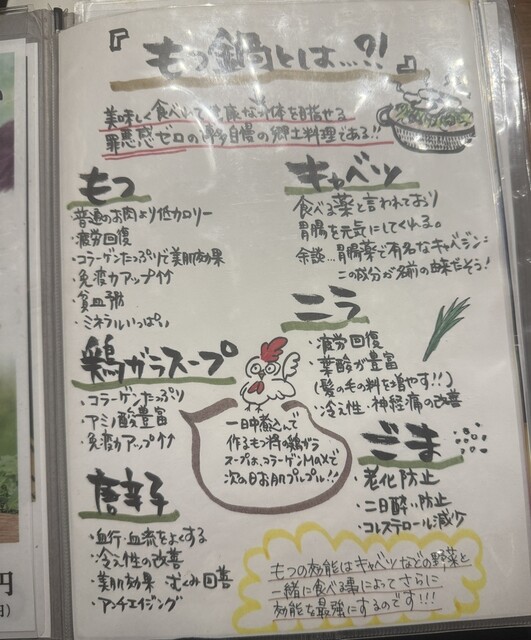 『もつ鍋とは…?!』
美味しく食べれて健康な身体を目指せる
罪悪感ゼロの博多自慢の郷土料理である!!
もつ
・普通のお肉より低カロリー
・疲労回復
・コラーゲンたっぷりで美肌効果
・免疫力アップ↑↑
・貧血予防
・ミネラルいっぱい
キャベツ
食べる薬と言われており
胃腸を元気にしてくれる。
余談…胃腸薬で有名なキャベジン:
この成分が名前の由来だそう!
ニラ
・疲労回復
・葉酸が豊富
(髪の毛の料を増やす!!)
・冷え性・神経痛の改善
鶏ガラスープ
・コラーゲンたっぷり
・アミノ酸豊富
・免疫力アップ↑↑
一日中煮込んで
作るもつ将の鶏ガラ
スープは、コラーゲンMAXで
次の日お肌プルプル!!
ごま
・老化防止
・二日酔い防止
・コレステロール減少
唐辛子
・血行・血流をよくする
・冷え性の改善
・美肌効果 むくみ回善
・アンチエイジング
もつの効能はキャベツなどの野菜と
一緒に食べる事によってさらに
効能を最強にするのです!!!
円